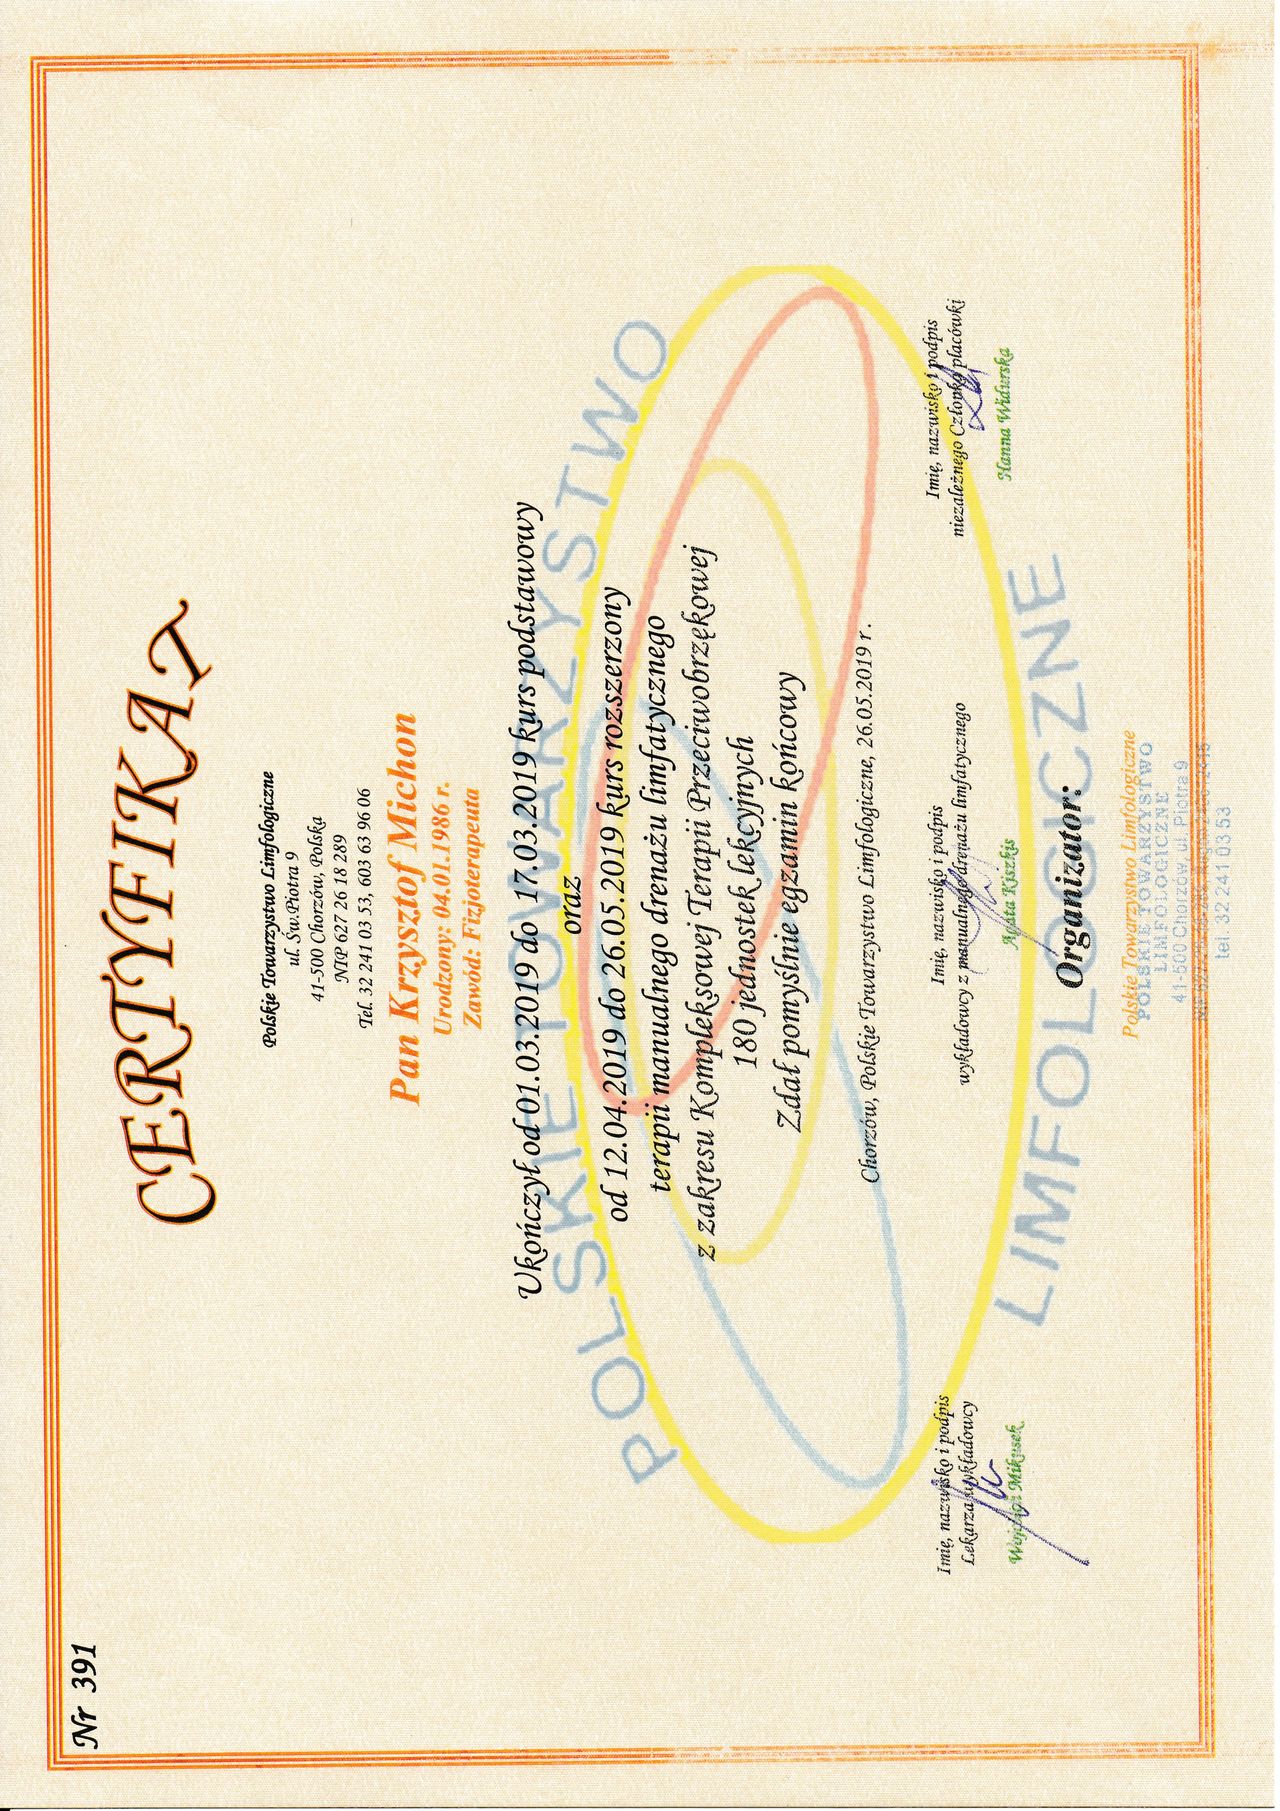 Nr 391
CERTYFIKAT
Polskie Towarzystwo Limfologiczne
ul. Św.Piotra 9
41-500 Chorzów, Polska
NIP 627 26 18 289
Tel. 32 241 03 53, 603 63 96 06
Pan Krzysztof Michon
Urodzony: 04.01.1986 r.
Zawód: Fizjoterapeuta
Ukończył od 01.03.2019 do 17.03.2019 kurs podstawowy
oraz
od 12.04.2019 do 26.05.2019 kurs rozszerzony
terapii manualnego drenażu limfatycznego
z zakresu Kompleksowej Terapii Przeciwobrzękowej
180 jednostek lekcyjnych
Zdał pomyślnie egzamin końcowy
Chorzów, Polskie Towarzystwo Limfologiczne, 26.05.2019 r.
POLSKIE TOWARZYSTWO
LIMFOLOGICZNE
Imię, nazwisko i podpis
Lekarza wykładowcy
Wojciech Mikusek
Imię, nazwisko i podpis
wykładowcy z manualnego drenażu limfatycznego
Agata Kiszkis
Imię, nazwisko i podpis
niezależnego Członka placówki
Hanna Widurska
Organizator:
Polskie Towarzystwo Limfologiczne
POLSKIE TOWARZYSTWO
LIMFOLOGICZNE
41-500 Chorzów, ul. Piotra 9
tel. 32 241 03 53